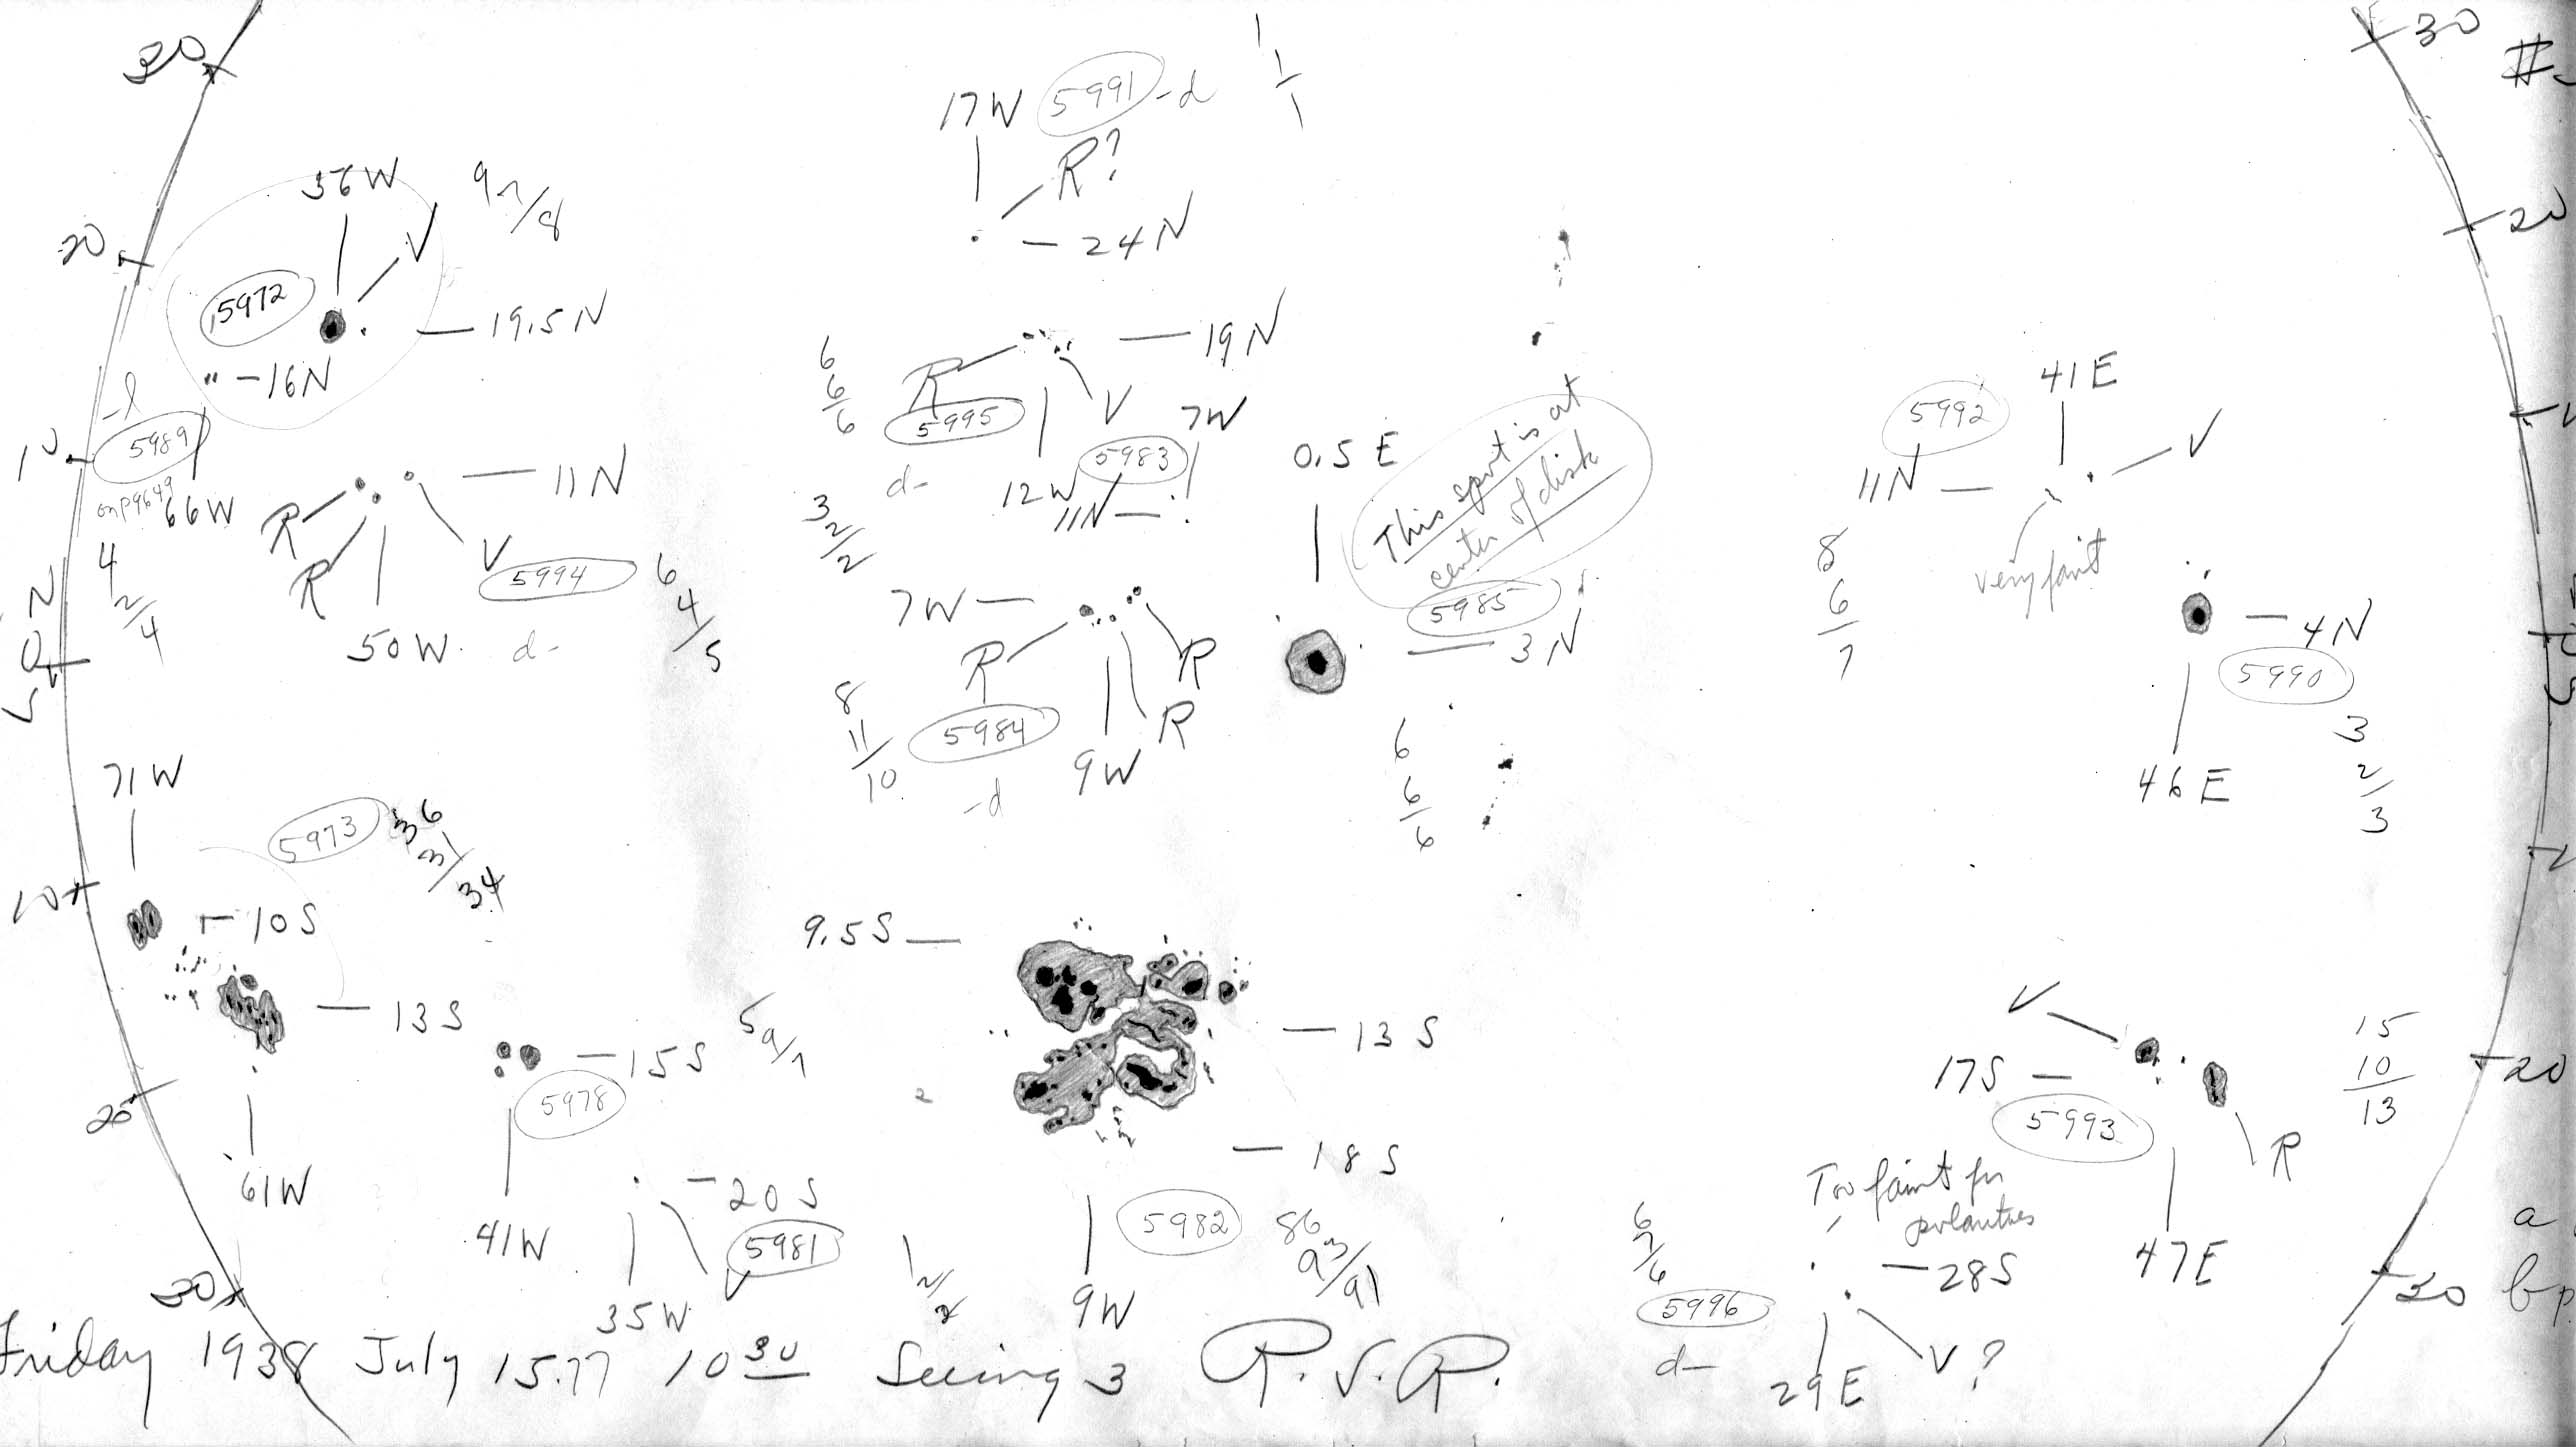 30
20
10
N
0
S
10
20
30
56W
V
9
7/8
5972
19.5N
-16N
-l
5989
on p9649
66W
4
2/4
R
R
11N
V
5994
50W
d-
6
4/5
17W
5991
-d
R?
-24N
1
1/1
6
6/6
R
5995
19N
V
12W
d-
3
2/2
5983
7W
11N
0.5E
This spot is at
center of disk
5985
3N
6
6/6
7W
R
R
R
8
11/10
5984
9W
-d
5992
41E
11N
V
very faint
8
6
7
4N
5990
46E
3
2/3
71W
5973
36
31/34
-10S
13S
61W
15S
5978
41W
5
9/7
-20S
5981
V
35W
1
2/2
9.5S
13S
18S
5982
9W
86
93/91
V
17S
5993
R
47E
15
10
13
Too faint for
polarities
28S
6
7/6
5996
d-
29E
V?
30
20
20
30
a
b p
Friday 1938 July 15.77 10 30 Seeing 3 R.S.R.